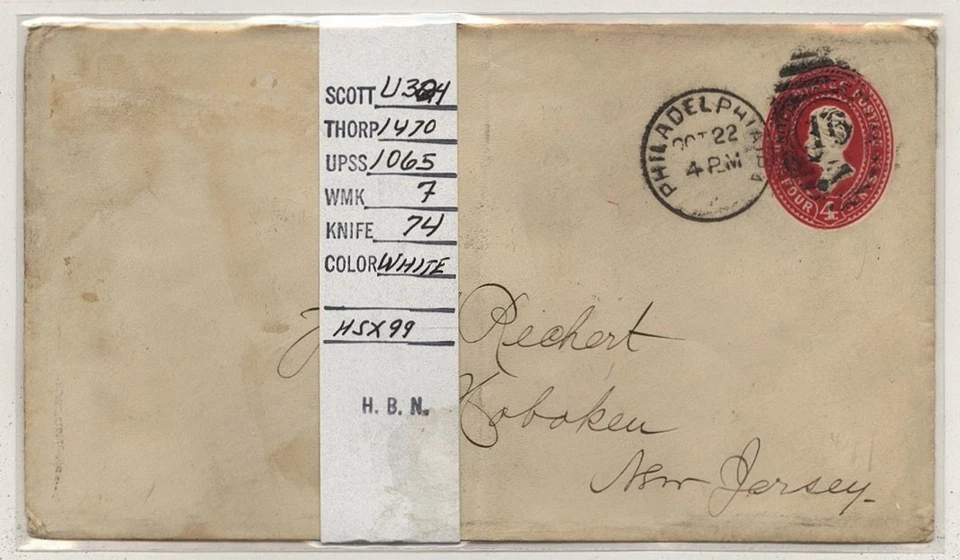 SCOTT U324
THORP 1470
UPSS 1065
WMK 7
KNIFE 74
COLOR WHITE
HSX99
H. B. N.
PHILADELPHIA, PA
OCT 22
4 PM
STATES POSTAGE
FOUR 4 CENTS
J Rechert
Hoboken
New Jersey.